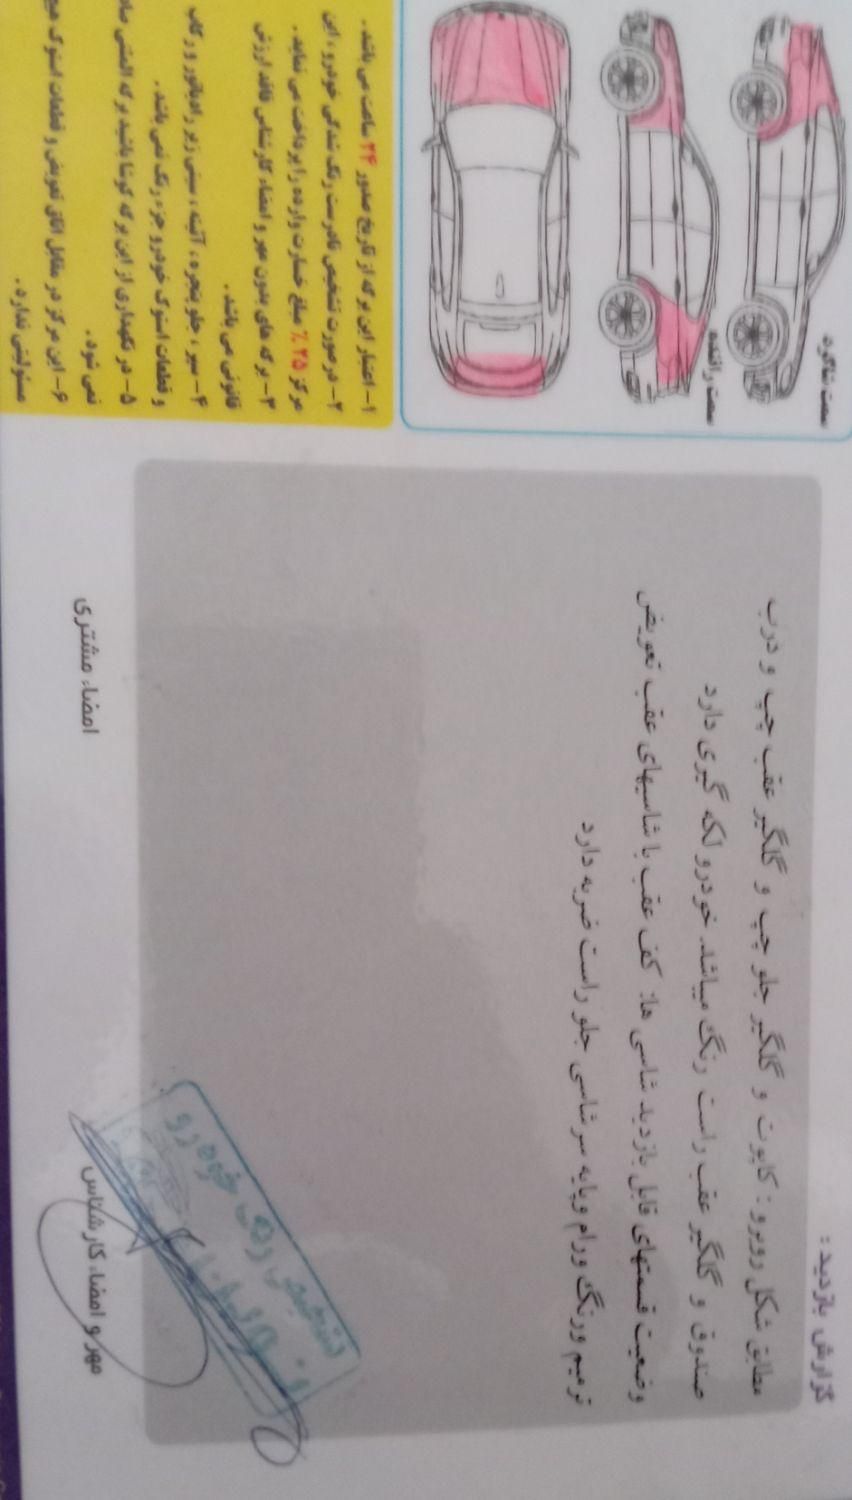 سمت شاگرد
سمت راننده
۱- اعتبار این برگه از تاریخ صدور ۲۴ ساعت می باشد.
۲- در صورت تشخیص نادرست رنگ شدگی خودرو، این
مرکز ۲۵٪ مبلغ خسارت وارده را پرداخت می نماید.
۳- برگه های بدون مهر و امضاء کارشناس فاقد ارزش
قانونی می باشد.
۴- سپر، جلو پنجره، آئینه، سینی زیر رادیاتور و رکاب
و قطعات استوک خودرو جزء رنگ نمی باشد.
۵- در نگهداری از این برگه کوشا باشید برگه المثنی صادر
نمی شود.
۶- این مرکز در مقابل اتاق تعویض و قطعات استوک هیچ
مسئولیتی ندارد.
گزارش بازدید:
مطابق شکل روبرو: کاپوت و گلگیر جلو چپ و گلگیر عقب چپ و درب
صندوق و گلگیر عقب راست رنگ میباشد. خودرو لکه گیری دارد
وضعیت قسمتهای قابل بازدید شاسی ها: کف عقب با شاسیهای عقب تعویض
ترمیم ورنگ ورام وپایه سر شاسی جلو راست ضربه دارد
امضاء مشتری
مهر و امضاء کارشناس
تشخیص رنگ خودرو